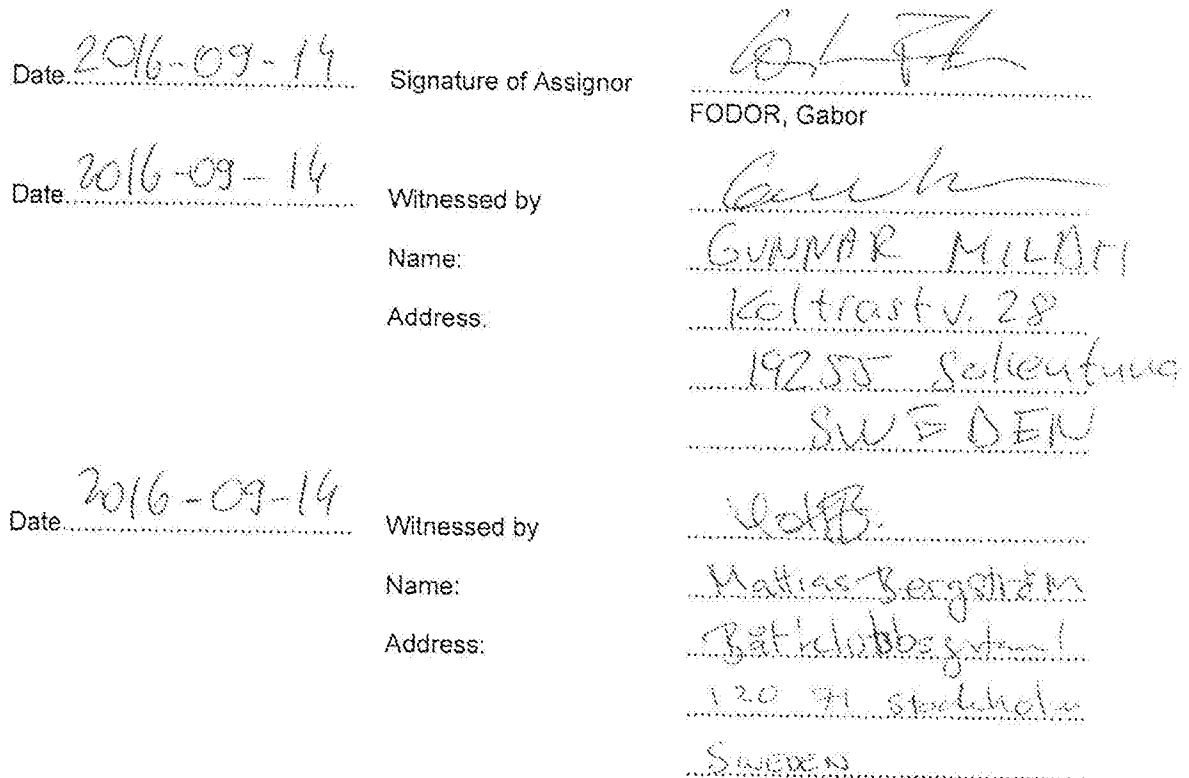 Date 2016-09-14 Signature of Assignor
FODOR, Gabor
Date 2016-09-14 Witnessed by
Name: GUNNAR MILDH
Address: Koltrastv. 28
19255 Sollentuna
SWEDEN
Date 2016-09-14 Witnessed by
Name: Mattias Bergström
Address:
120 Stockholm
SWEDEN